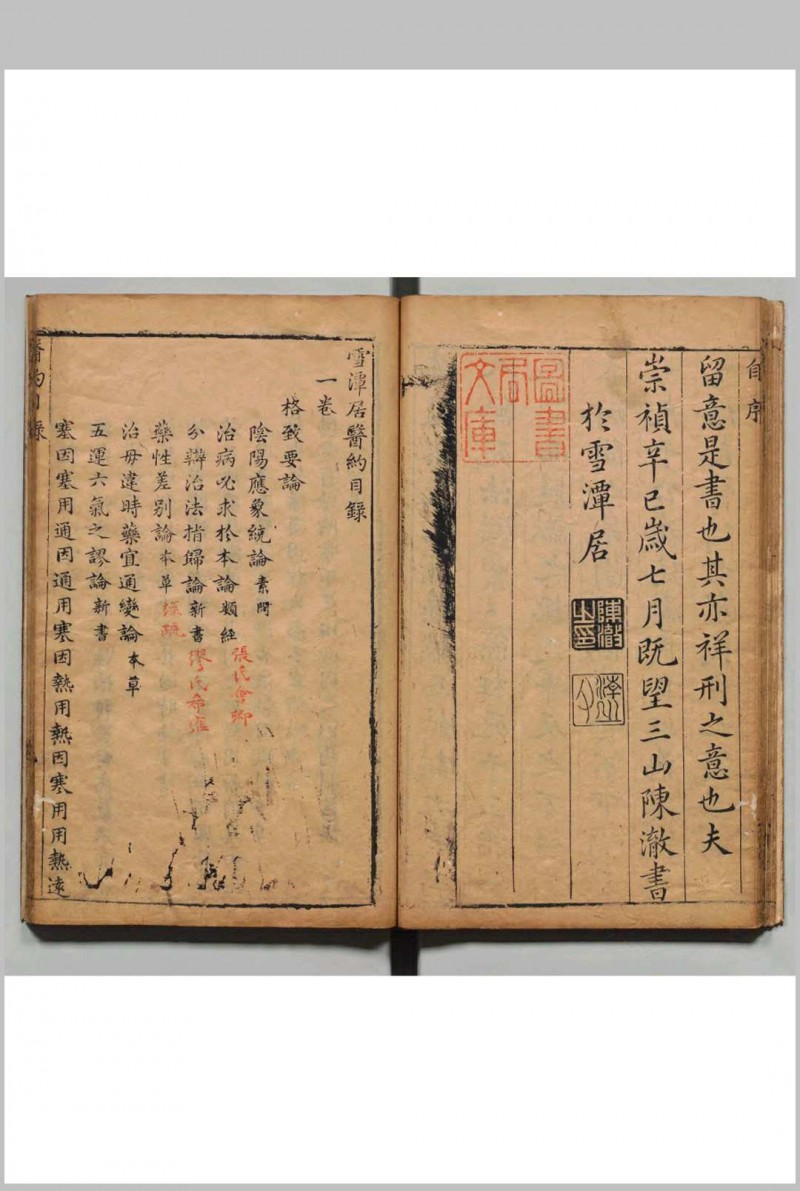 自序
留意是書也其亦祥刑之意也夫
崇禎辛巳歲七月既望三山陳澈書
於雪潭居
陳澈之印
圖書
局
文庫
雪潭居醫約目錄
一卷
格致要論
陰陽應象統論素問
治病必求於本論類經張氏會卿
分辯治法指歸論新書繆氏希雍
藥性差別論本草經疏
治毋違時藥宜通變論本草
五運六氣之謬論新書
塞因塞用通因通用寒因熱用熱因寒用用熱遠
醫約目錄